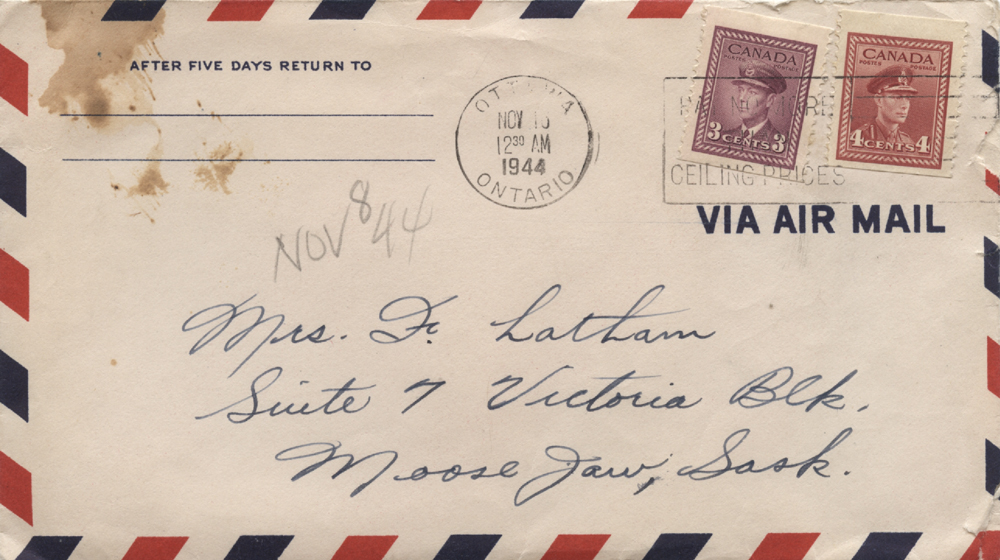 AFTER FIVE DAYS RETURN TO
OTTAWA
NOV
12³⁰ AM
1944
ONTARIO
CANADA
POSTES POSTAGE
3 CENTS 3
CANADA
POSTES POSTAGE
4 CENTS 4
PAY NO MORE
CEILING PRICES
VIA AIR MAIL
NOV 8 44
Mrs. F. Latham
Suite 7 Victoria Blk.
Moose Jaw, Sask.